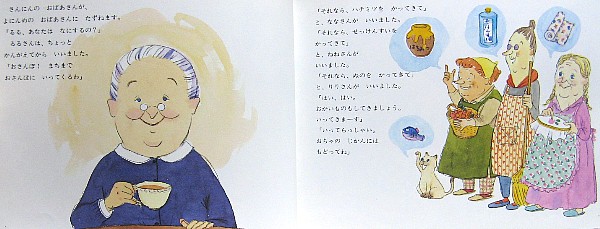 さんにんの おばあさんが、
よにんめの おばあさんに たずねます。
「るる、あなたは なにするの？」
るるさんは、ちょっと
かんがえてから いいました。
「おさんぽ！ まちまで
おさんぽに いってくるわ」
「それなら、ハチミツを かってきて」
と、ななさんが いいました。
「それなら、せっけんすいを
かってきて」
と、ねねさんが
いいました。
「それなら、ぬのを かってきて」
と、りりさんが いいました。
「はい、はい。
おかいものもしてきましょう。
いってきまーす」
「いってらっしゃい。
おちゃの じかんには
もどってね」